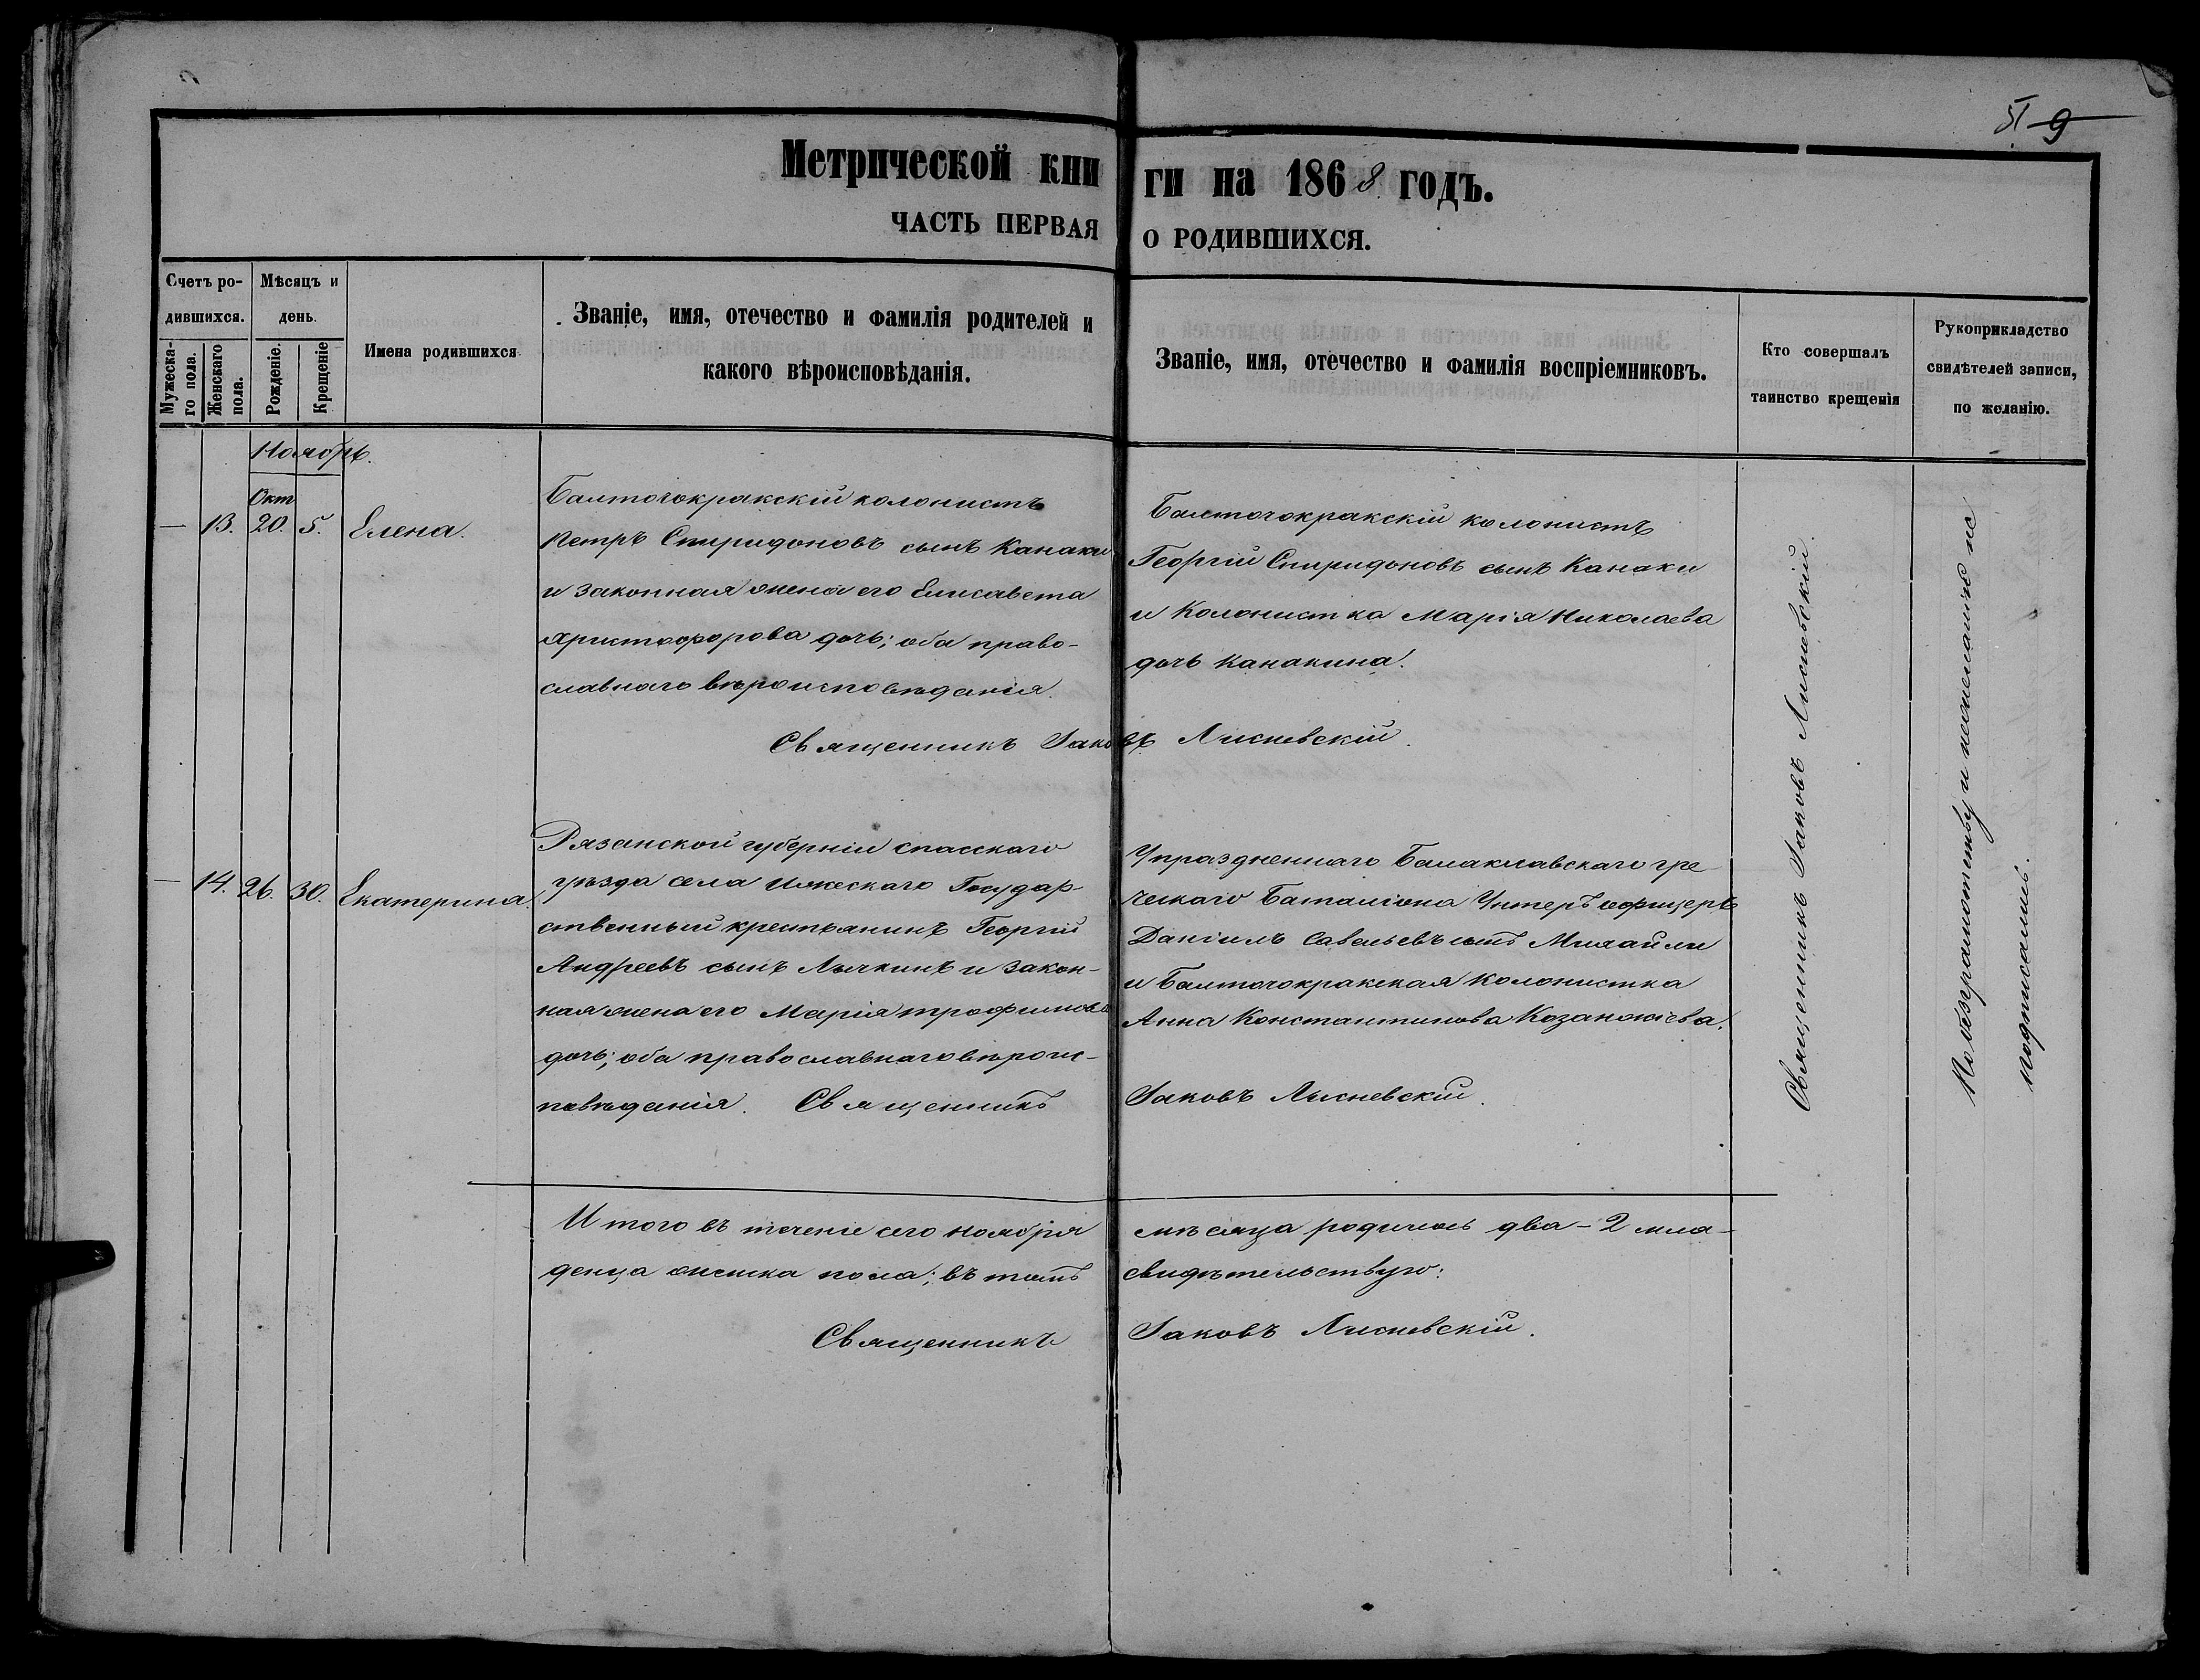 51 9
Метрической кни ги на 1868 годъ.
ЧАСТЬ ПЕРВАЯ О РОДИВШИХСЯ.
Счетъ ро-
дившихся.
Мужеска-
го пола.
Женскаго
пола.
Мѣсяцъ и
день.
Рожденіе.
Крещеніе
Имена родившихся
Званіе, имя, отечество и фамилія родителей и
какого вѣроисповѣданія.
Званіе, имя, отечество и фамилія воспріемниковъ.
Кто совершалъ
таинство крещенія
Рукоприкладство
свидѣтелей записи,
по желанію.
Ноябрь.
Окт
— 13. 20. 5. Елена.
Балточокракскій колонистъ
Петръ Спиридоновъ сынъ Канаки
и законная жена его Елисавета
Христофорова дочь; оба право-
славнаго вѣроисповѣданія.
Балточокракскій колонистъ
Георгій Спиридоновъ сынъ Канаки
и Колонистка Марія Николаева
дочь Канакина.
Священникъ Іаковъ Лисневскій.
— 14. 26. 30. Екатерина.
Рязанской губерніи спасскаго
уѣзда села Ижескаго Государ-
ственный крестьянинъ Георгій
Андреевъ сынъ Лычкинъ и закон-
ная жена его Марія трофимова
дочь; оба православнаго вѣроис-
повѣданія. Священникъ
Упраздненнаго Балаклавскаго гре-
ческаго Баталіона Унтеръ офицеръ
Даніилъ Савельевъ сынъ Михайли
и Балточокракская колонистка
Анна Константинова Козанжіева.
Іаковъ Лисневскій.
Священникъ Іаковъ Лисневскій.
По безграмотству и нежеланію не
подписались.
Итого въ теченіе сего ноября мѣсяца родилось два - 2 мла-
денца женска пола; въ томъ свидѣтельствую:
Священникъ Іаковъ Лисневскій.